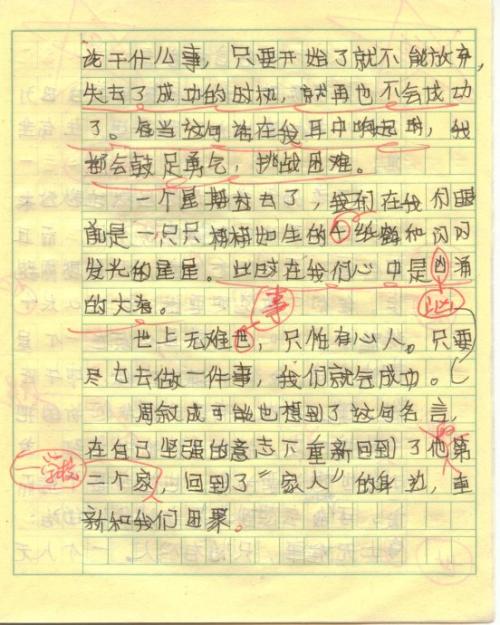 论干什么事，只要开始了就不能放弃，
失去了成功的时机，就再也不会成功
了。每当这句话在我耳中响起时，我
都会鼓足勇气，挑战困难。
一个星期过去了，我们在我们眼
前是一只只栩栩如生的千纸鹤和闪闪
发光的星星。此时在我们心中是凶涌
的大海。
事
汹
世上无难世，只怕有心人。只要
尽力去做一件事，我们就会成功。
周叙成可能也想到了这句名言，
在自己坚强的意志下重新回到了他第
二个家，回到了“家人”的身边，重
新和我们团聚。